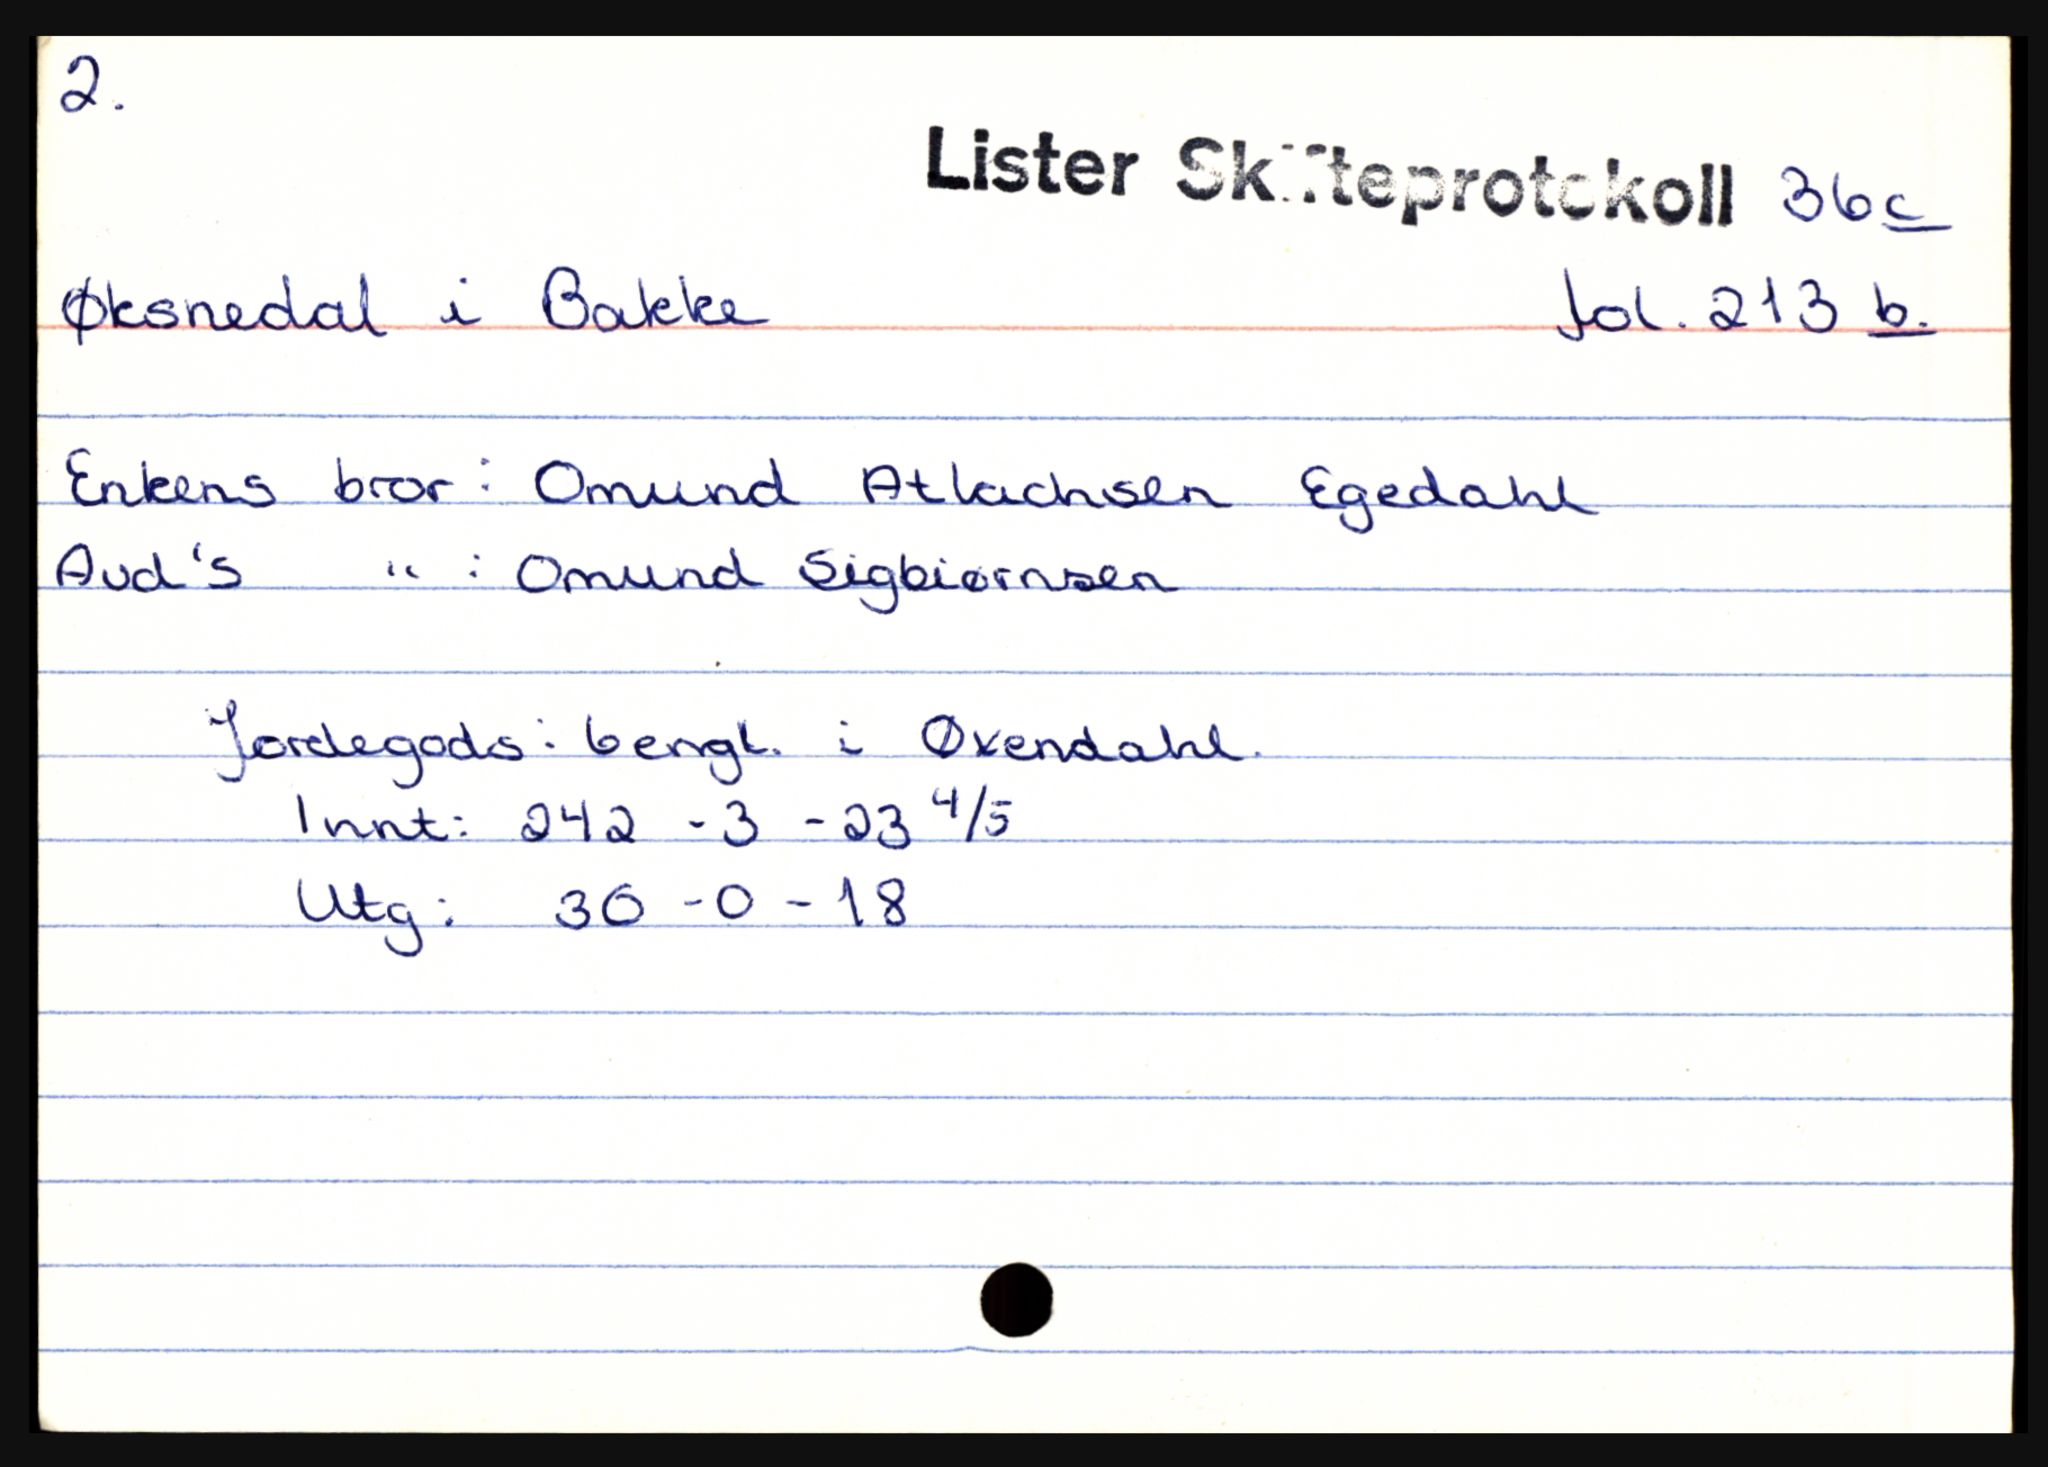 2.
Lister Skifteprotokoll 36c
Øksnedal i Bakke fol. 213 b.
Enkens bror: Omund Atlachsen Egedahl
Avd's " : Omund Sigbiørnsen
Jordegods: 6 engl. i Øxendahl.
Innt: 242 - 3 - 23 4/5
Utg: 36 - 0 - 18